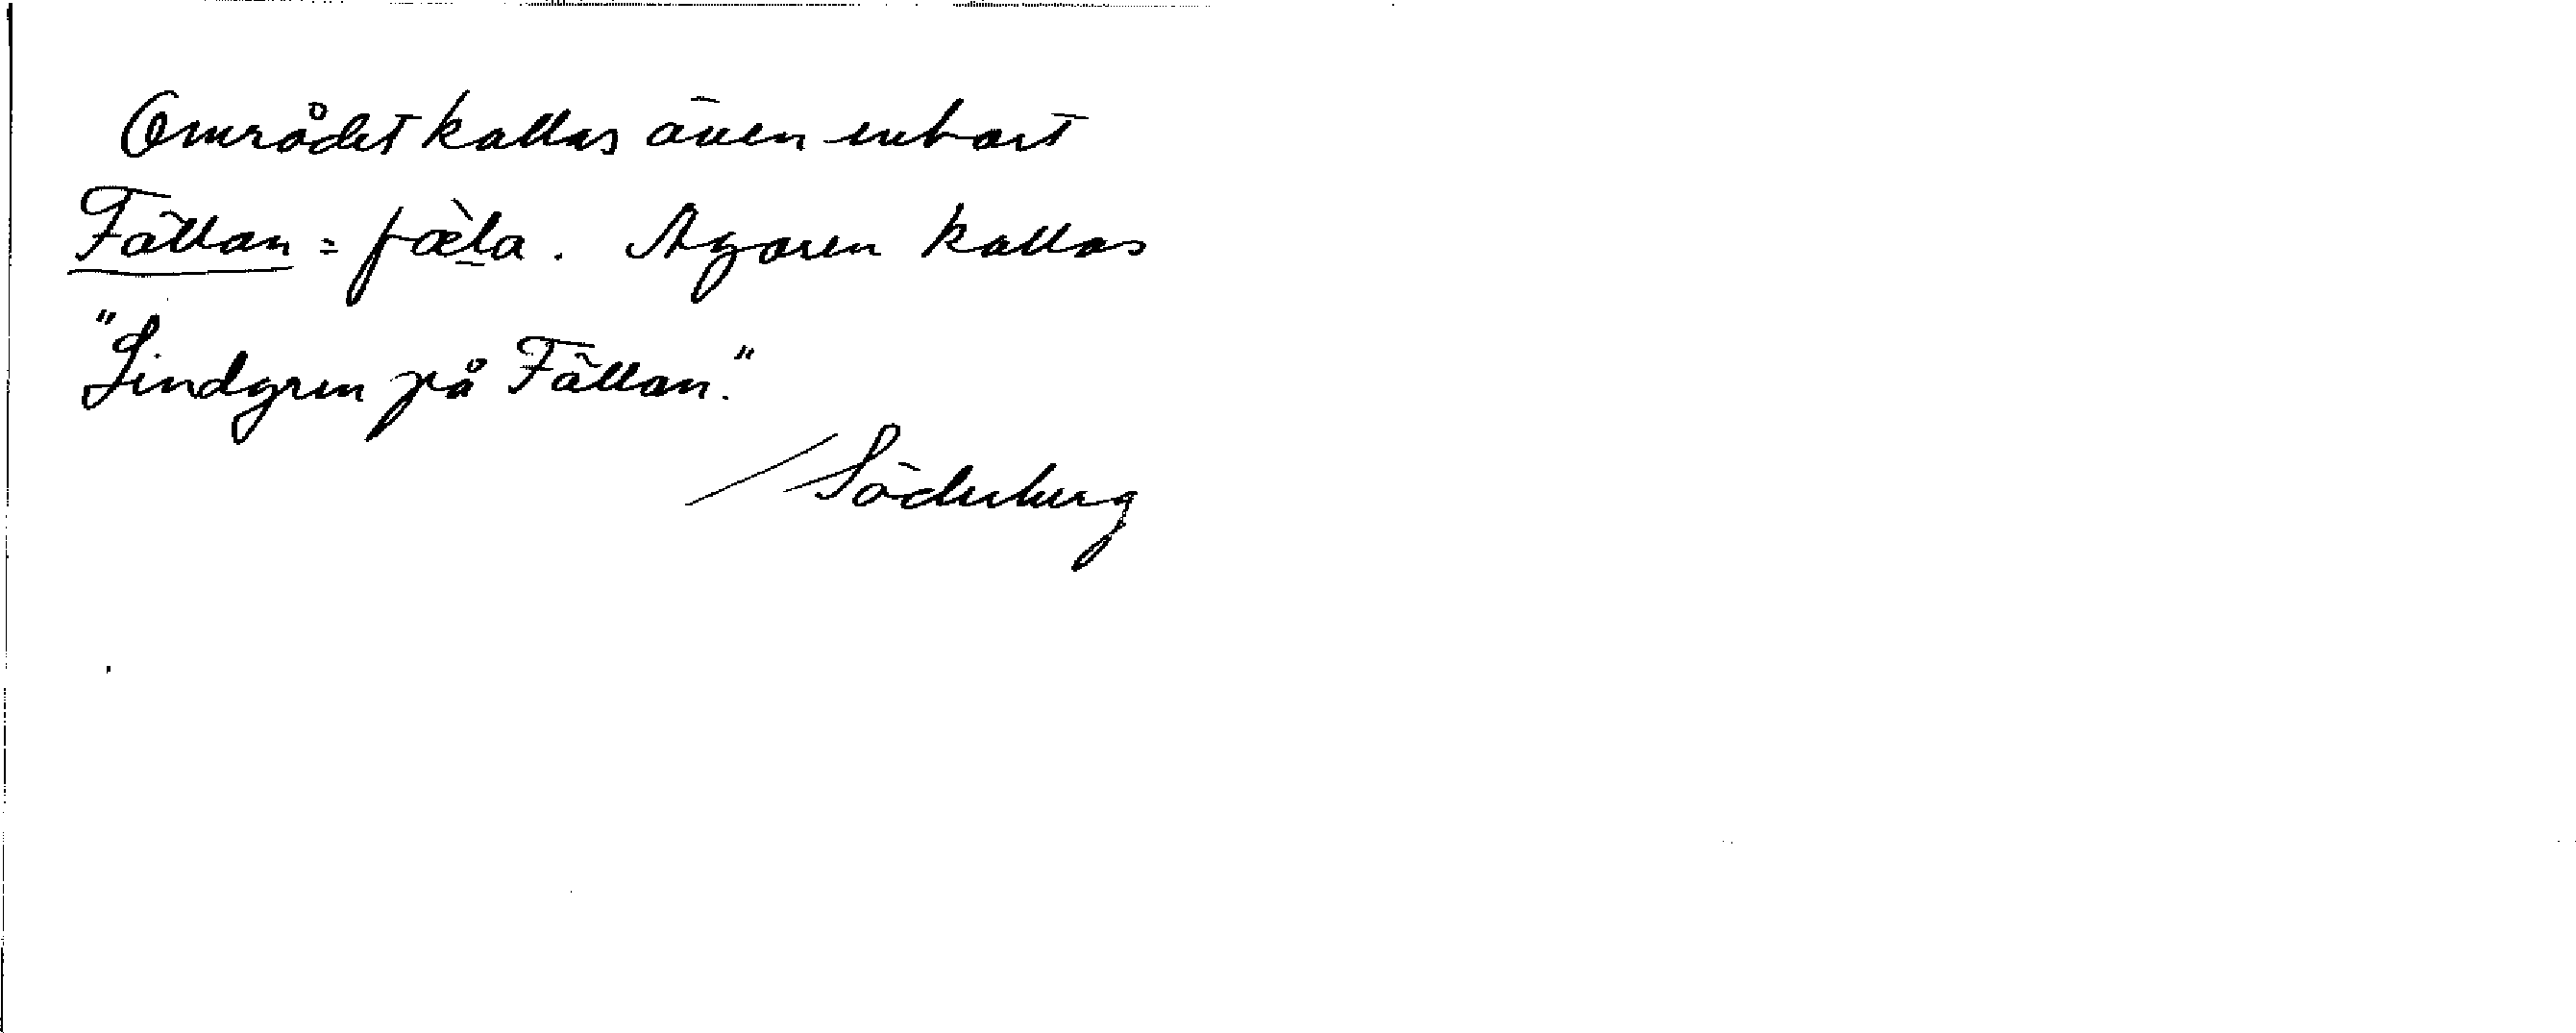 Området kallas även enbart
Fällan = fæ̀l̲a. Ägaren kallas
"Lindgren på Fällan."
/Söderberg